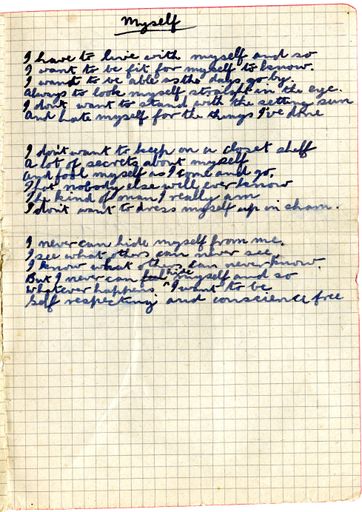 Myself
I have to live with myself and so
I want to be fit for myself to know.
I want to be able as the days go by.
Always to look myself straight in the eye.
I don't want to stand with the setting sun
And hate myself for the things I've done
I don't want to keep on a closet shelf
A lot of secrets about myself
And fool myself as I come and go,
That nobody else will ever know
The kind of man I really am
I don't want to dress myself up in sham.
I never can hide myself from me.
I see what others can never see
I know what others can never know.
But I never can fool hide myself and so
Whatever happens I want to be
Self respecting and conscience free